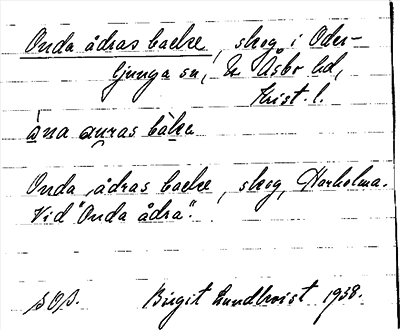 Onda ådras backe, skog i Oder-
ljunga sn, N. Åsbo hd,
Krist. l.
ána auras bàka
Onda ådras backe, skog, Harholma.
Vid "Onda ådra".
SOS. Birgit Lundkvist 1938.